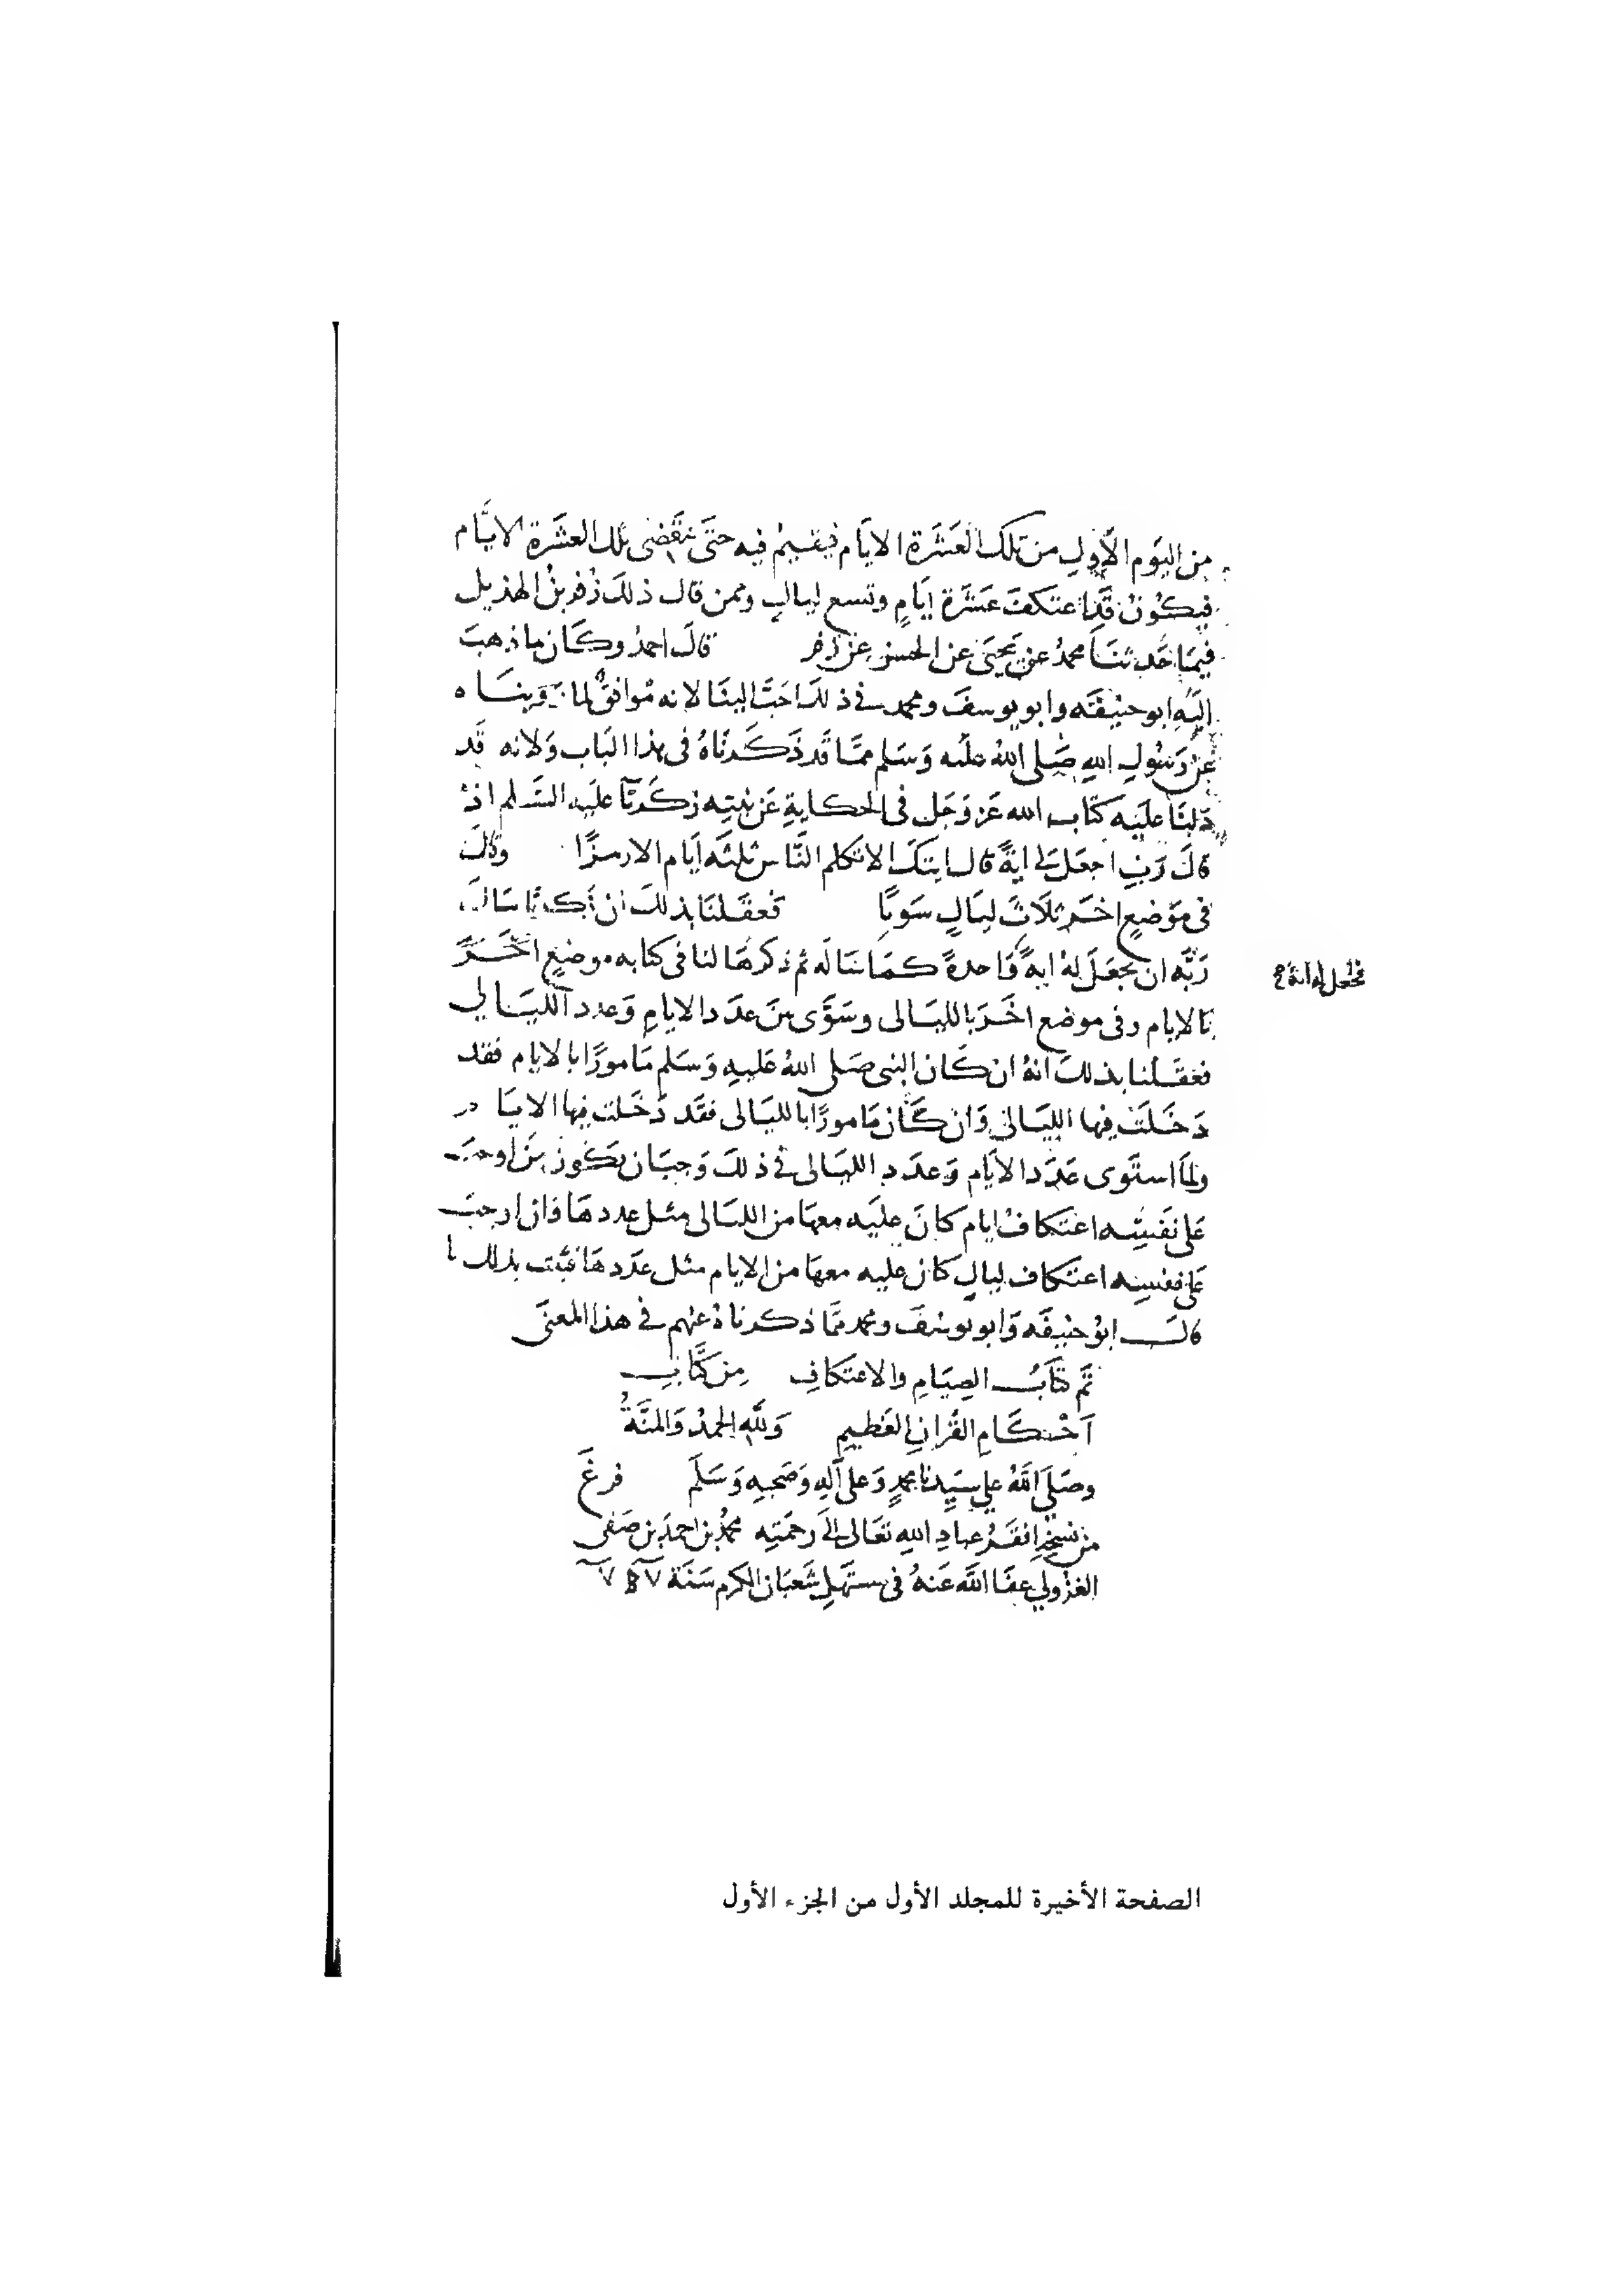 من اليوم الأول من تلك العشرة الايام فيقيم فيه حتى تنقضى تلك العشرة الايام
فيكون قد اعتكف عشرة ايام وتسع ليال وممن قال ذلك زفر بن الهذيل
فيما حدثنا محمد عن يحيى عن الحسن عن زفر قال احمد وكان ما ذهب
اليه ابو حنيفه وابو يوسف ومحمد فى ذلك احب الينا لانه موافق لما روينا ه
عن رسول الله صلى الله عليه وسلم مما قد ذكرناه فى هذا الباب ولانه قد
دلنا عليه كتاب الله عز وجل فى الحكاية عن نبيه زكريا عليه السلم اذ
قال رب اجعل لى اية قال ايتك الا تكلم الناس ثلثه ايام الا رمزا وقال
فى موضع اخر ثلاث ليال سويا فعقلنا بذلك ان زكريا سال
ربه ان يجعل له اية واحدة كما سال ثم ذكرها لنا فى كتابه موضع اخر
بالايام وفى موضع اخر بالليالى وسوى بين عدد الايام وعدد الليالي
فعقلنا بذلك انه ان كان النبى صلى الله عليه وسلم مامورا بالايام فقد
دخلت فيها الليالى وان كان مامورا بالليالى فقد دخلت فيها الايام
ولما استوى عدد الايام وعدد الليالى فى ذلك وجب ان يكون من اوجب
على نفسه اعتكاف ايام كان عليه معها من الليالى مثل عددها فان اوجب
على نفسه اعتكاف ليال كان عليه معها من الايام مثل عددها فثبت بذلك ما
قال ابو حنيفه وابو يوسف ومحمد مما ذكرناه عنهم فى هذا المعنى
تم كتاب الصيام والاعتكاف من كتاب
احكام القران العظيم ولله الحمد والمنة
وصلى الله على سيدنا محمد وعلى آله وصحبه وسلم فرغ
من نسخه افقر عباد الله تعالى الى رحمته محمد بن احمد بن صفى
الغزولي عفا الله عنه فى مستهل شعبان المكرم سنة
الصفحة الأخيرة للمجلد الأول من الجزء الأول